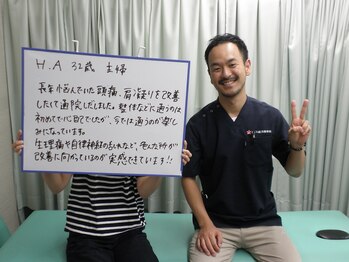 H.A 32歳 主婦
長年悩んでいた頭痛、肩凝りを改善
したくて通院しだしました。整体などに通うのは
初めてでしたが、今では通うのが楽し
みになっています。
生理痛や自律神経の乱れなど、色んな所が
改善に向かっているのが実感できています!!